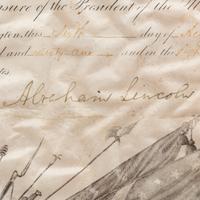 asure of the President of the U
gton, this Sixth day of
and sixty one and in the
tes.
Abraham Lincoln